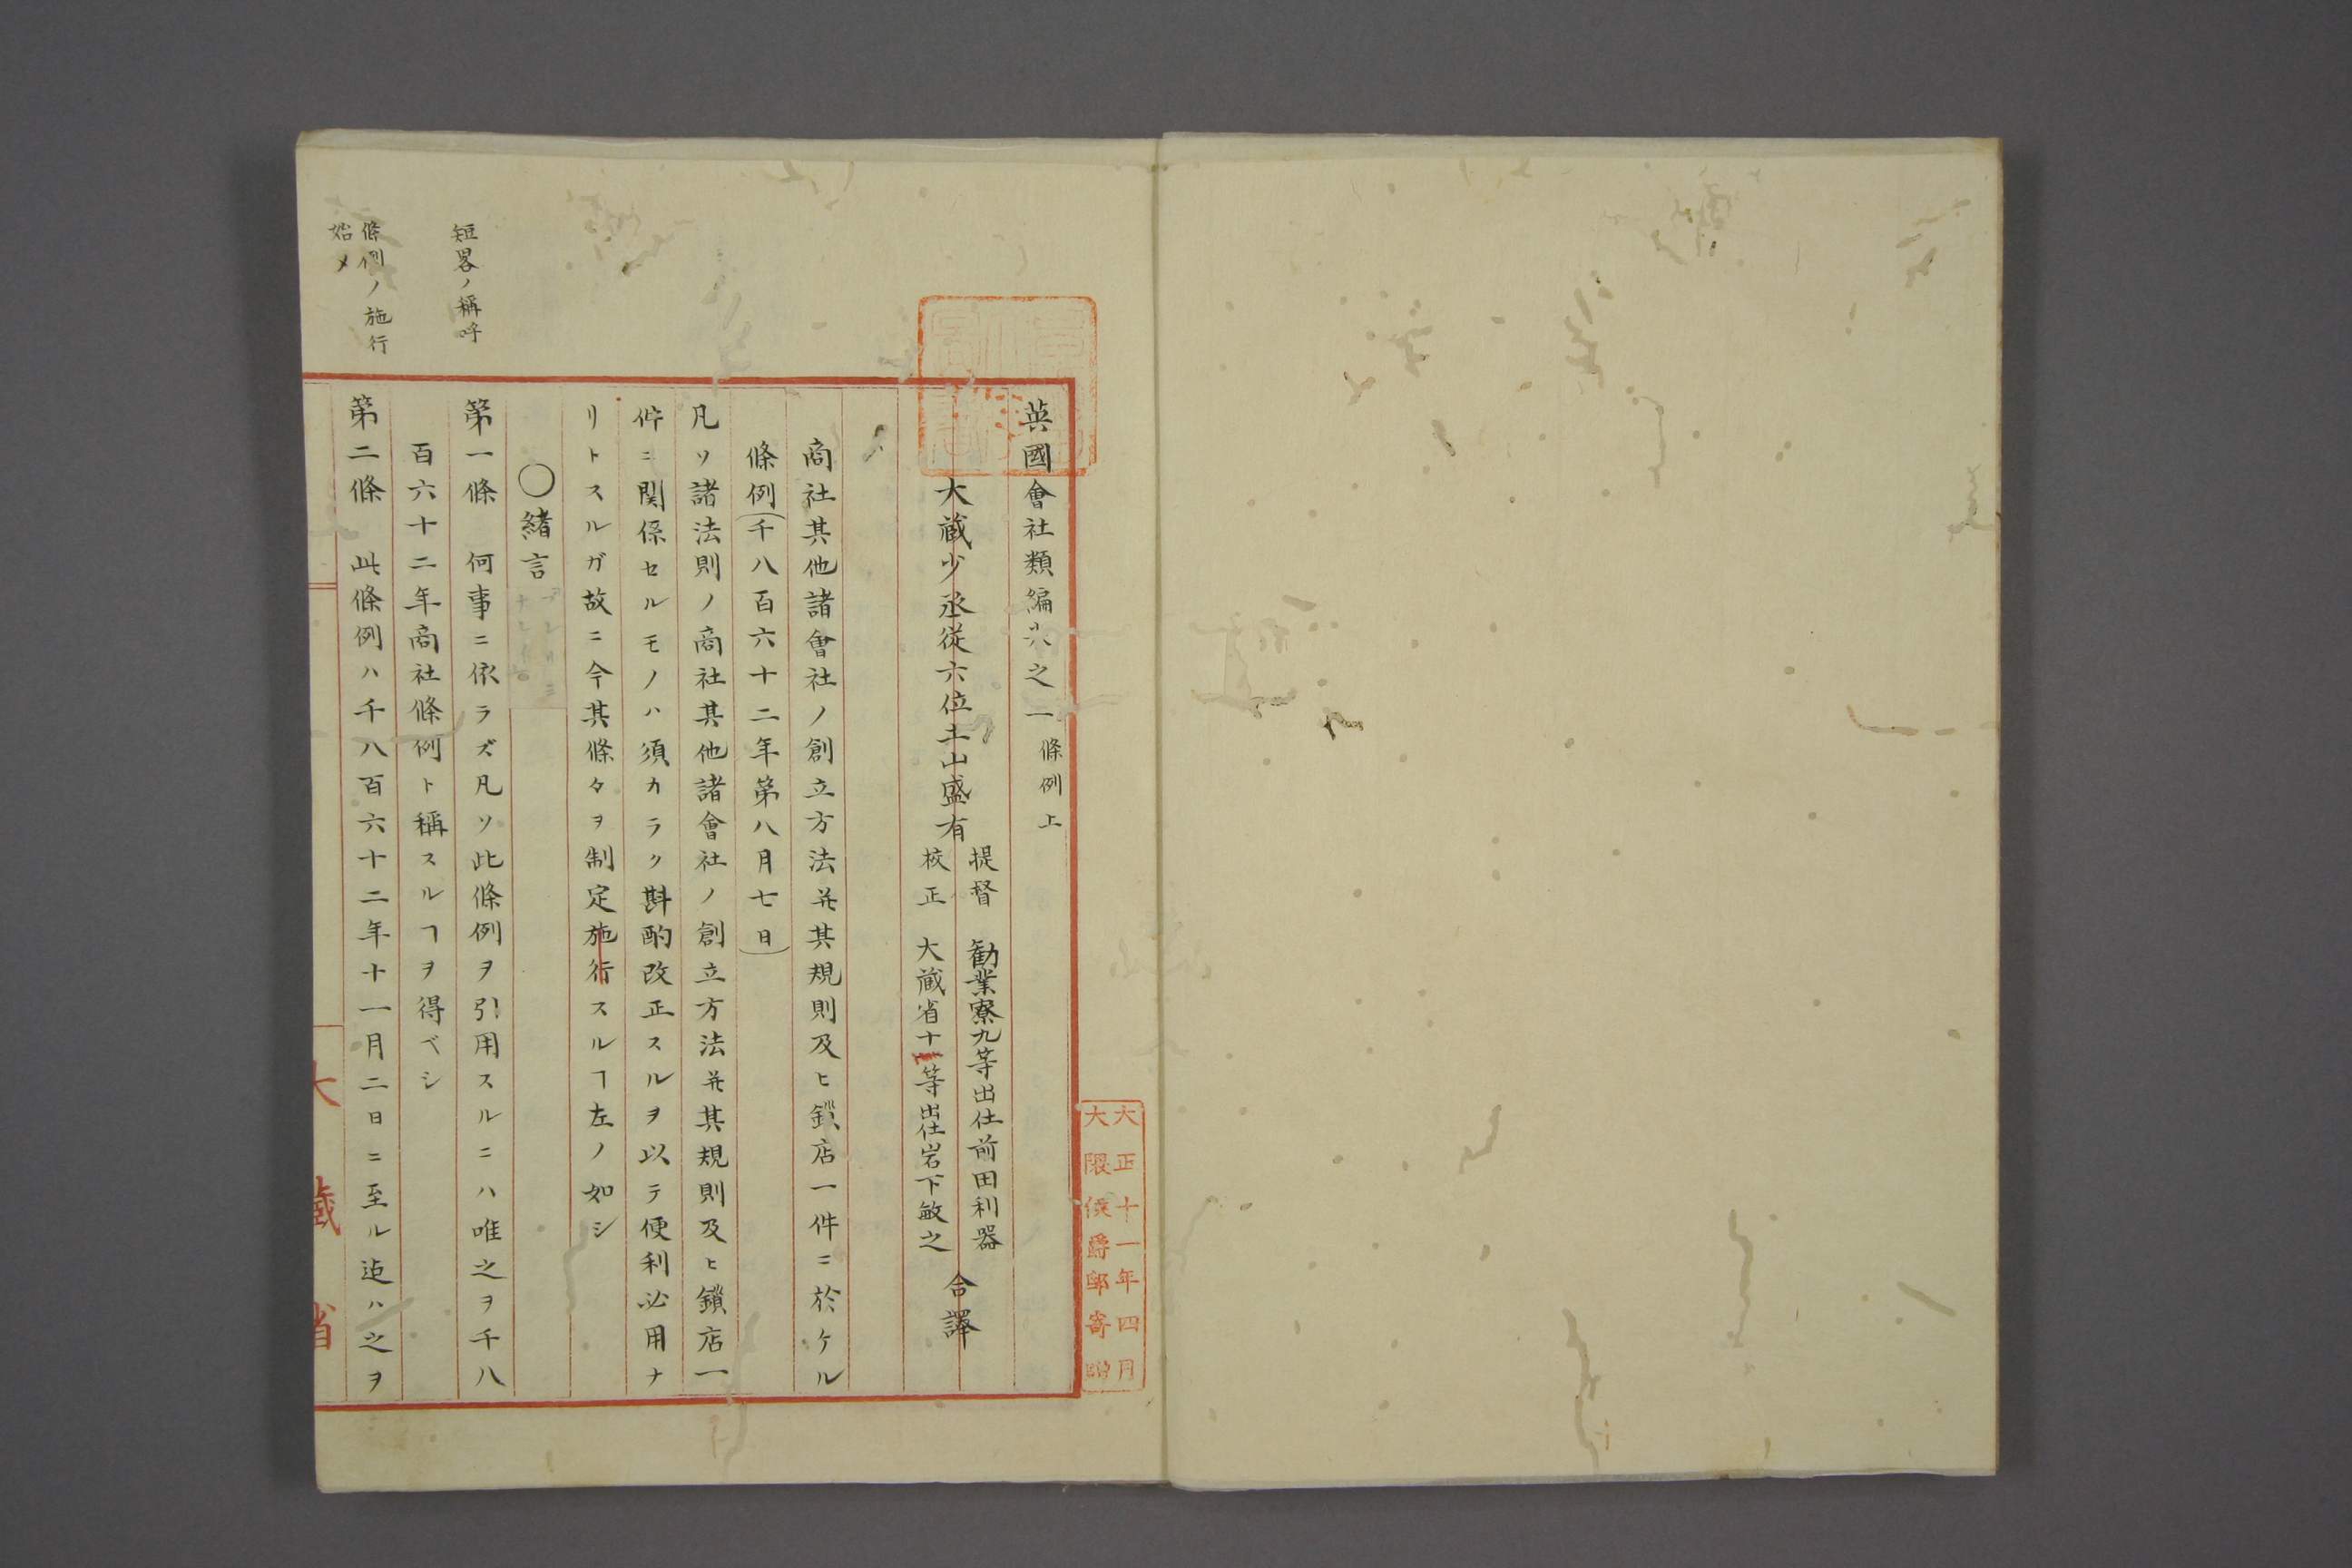 英國會社類編六之一 條例上
大蔵少丞従六位土山盛有
提督 勧業寮九等出仕前田利器
校正 大蔵省十一等出仕岩下敏之
合譯
商社其他諸會社ノ創立方法并其規則及ヒ鎖店一件ニ於ケル
條例(千八百六十二年第八月七日)
凡ソ諸法則ノ商社其他諸會社ノ創立方法并其規則及ヒ鎖店一
件ニ関係セルモノハ須カラク斟酌改正スルヲ以テ便利必用ナ
リトスルガ故ニ今其條々ヲ制定施行スルヿ左ノ如シ
○緒言
短畧ノ稱呼
第一條 何事ニ依ラズ凡ソ此條例ヲ引用スルニハ唯之ヲ千八
百六十二年商社條例ト稱スルヿヲ得ベシ
條例ノ施行
始メ
第二條 此條例ハ千八百六十二年十一月二日ニ至ル迠ハ之ヲ
大藏省
大正十一年四月
大隈侯爵邸寄贈